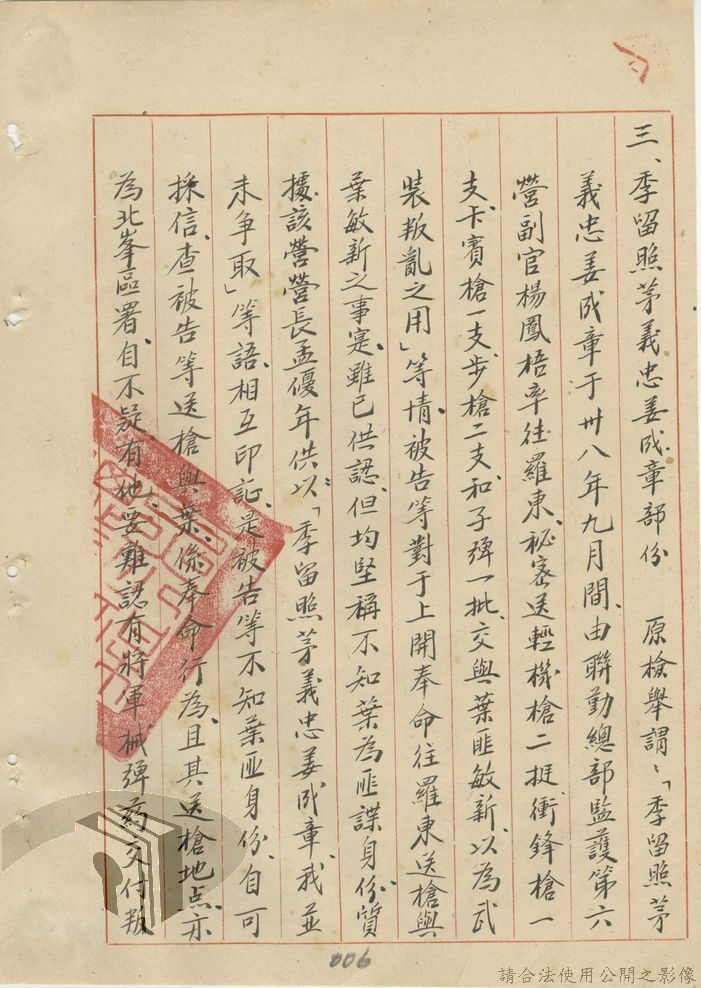 三、季留照茅義忠姜成章部份　原檢舉謂：「季留照茅
義忠姜成章于卅八年九月間、由聯勤總部監護第六
營副官楊鳳梧率往羅東、祕密送輕機槍二挺、衝鋒槍一
支、卡賓槍一支、步槍二支、和子彈一批、交與葉匪敏新、以為武
裝叛亂之用」等情、被告等對于上開奉命往羅東送槍與
葉敏新之事寔、雖已供認、但均堅稱不知葉為匪諜身份、質
據該營營長孟優年供以「季留照茅義忠姜成章、我並
未爭取」等語、相互印証、是被告等不知葉匪身份、自可
採信、查被告等送槍與葉、係奉命行為、且其送槍地点、亦
為北峯區署、自不疑有他、要難認有將軍械彈葯交付叛
006
請合法使用公開之影像